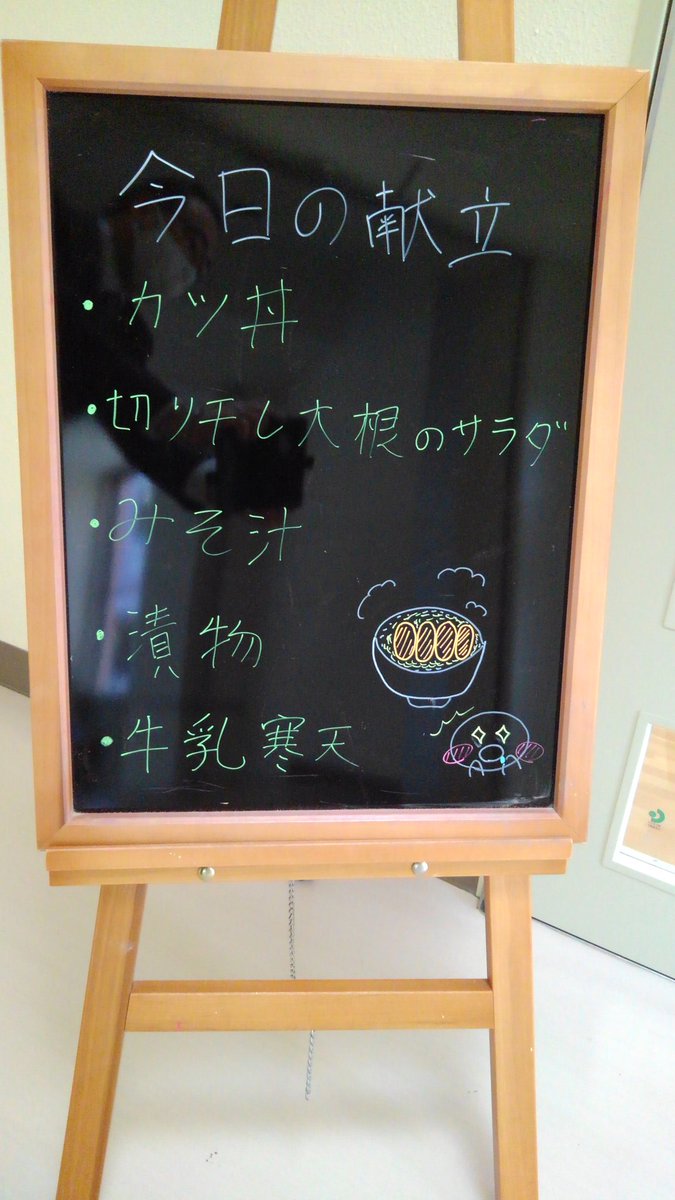 今日の献立
・カツ丼
・切り干し大根のサラダ
・みそ汁
・漬物
・牛乳寒天